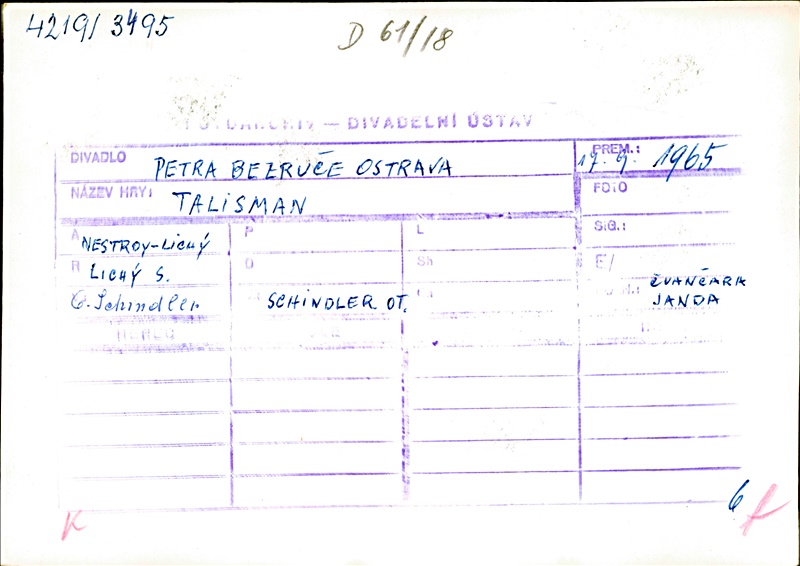 4219/3495
D 61/18
FOTOARCHIV — DIVADELNÍ ÚSTAV
DIVADLO PETRA BEZRUČE OSTRAVA
PREM.: 17. 9. 1965
NÁZEV HRY: TALISMAN
FOTO
A NESTROY-LICHÝ
P
L
SIG.:
R LICHÝ S.
D
Sh
E/
O. Schindler
SCHINDLER OT.
N.: ZVANČARA
JANDA
HEREC
K
6